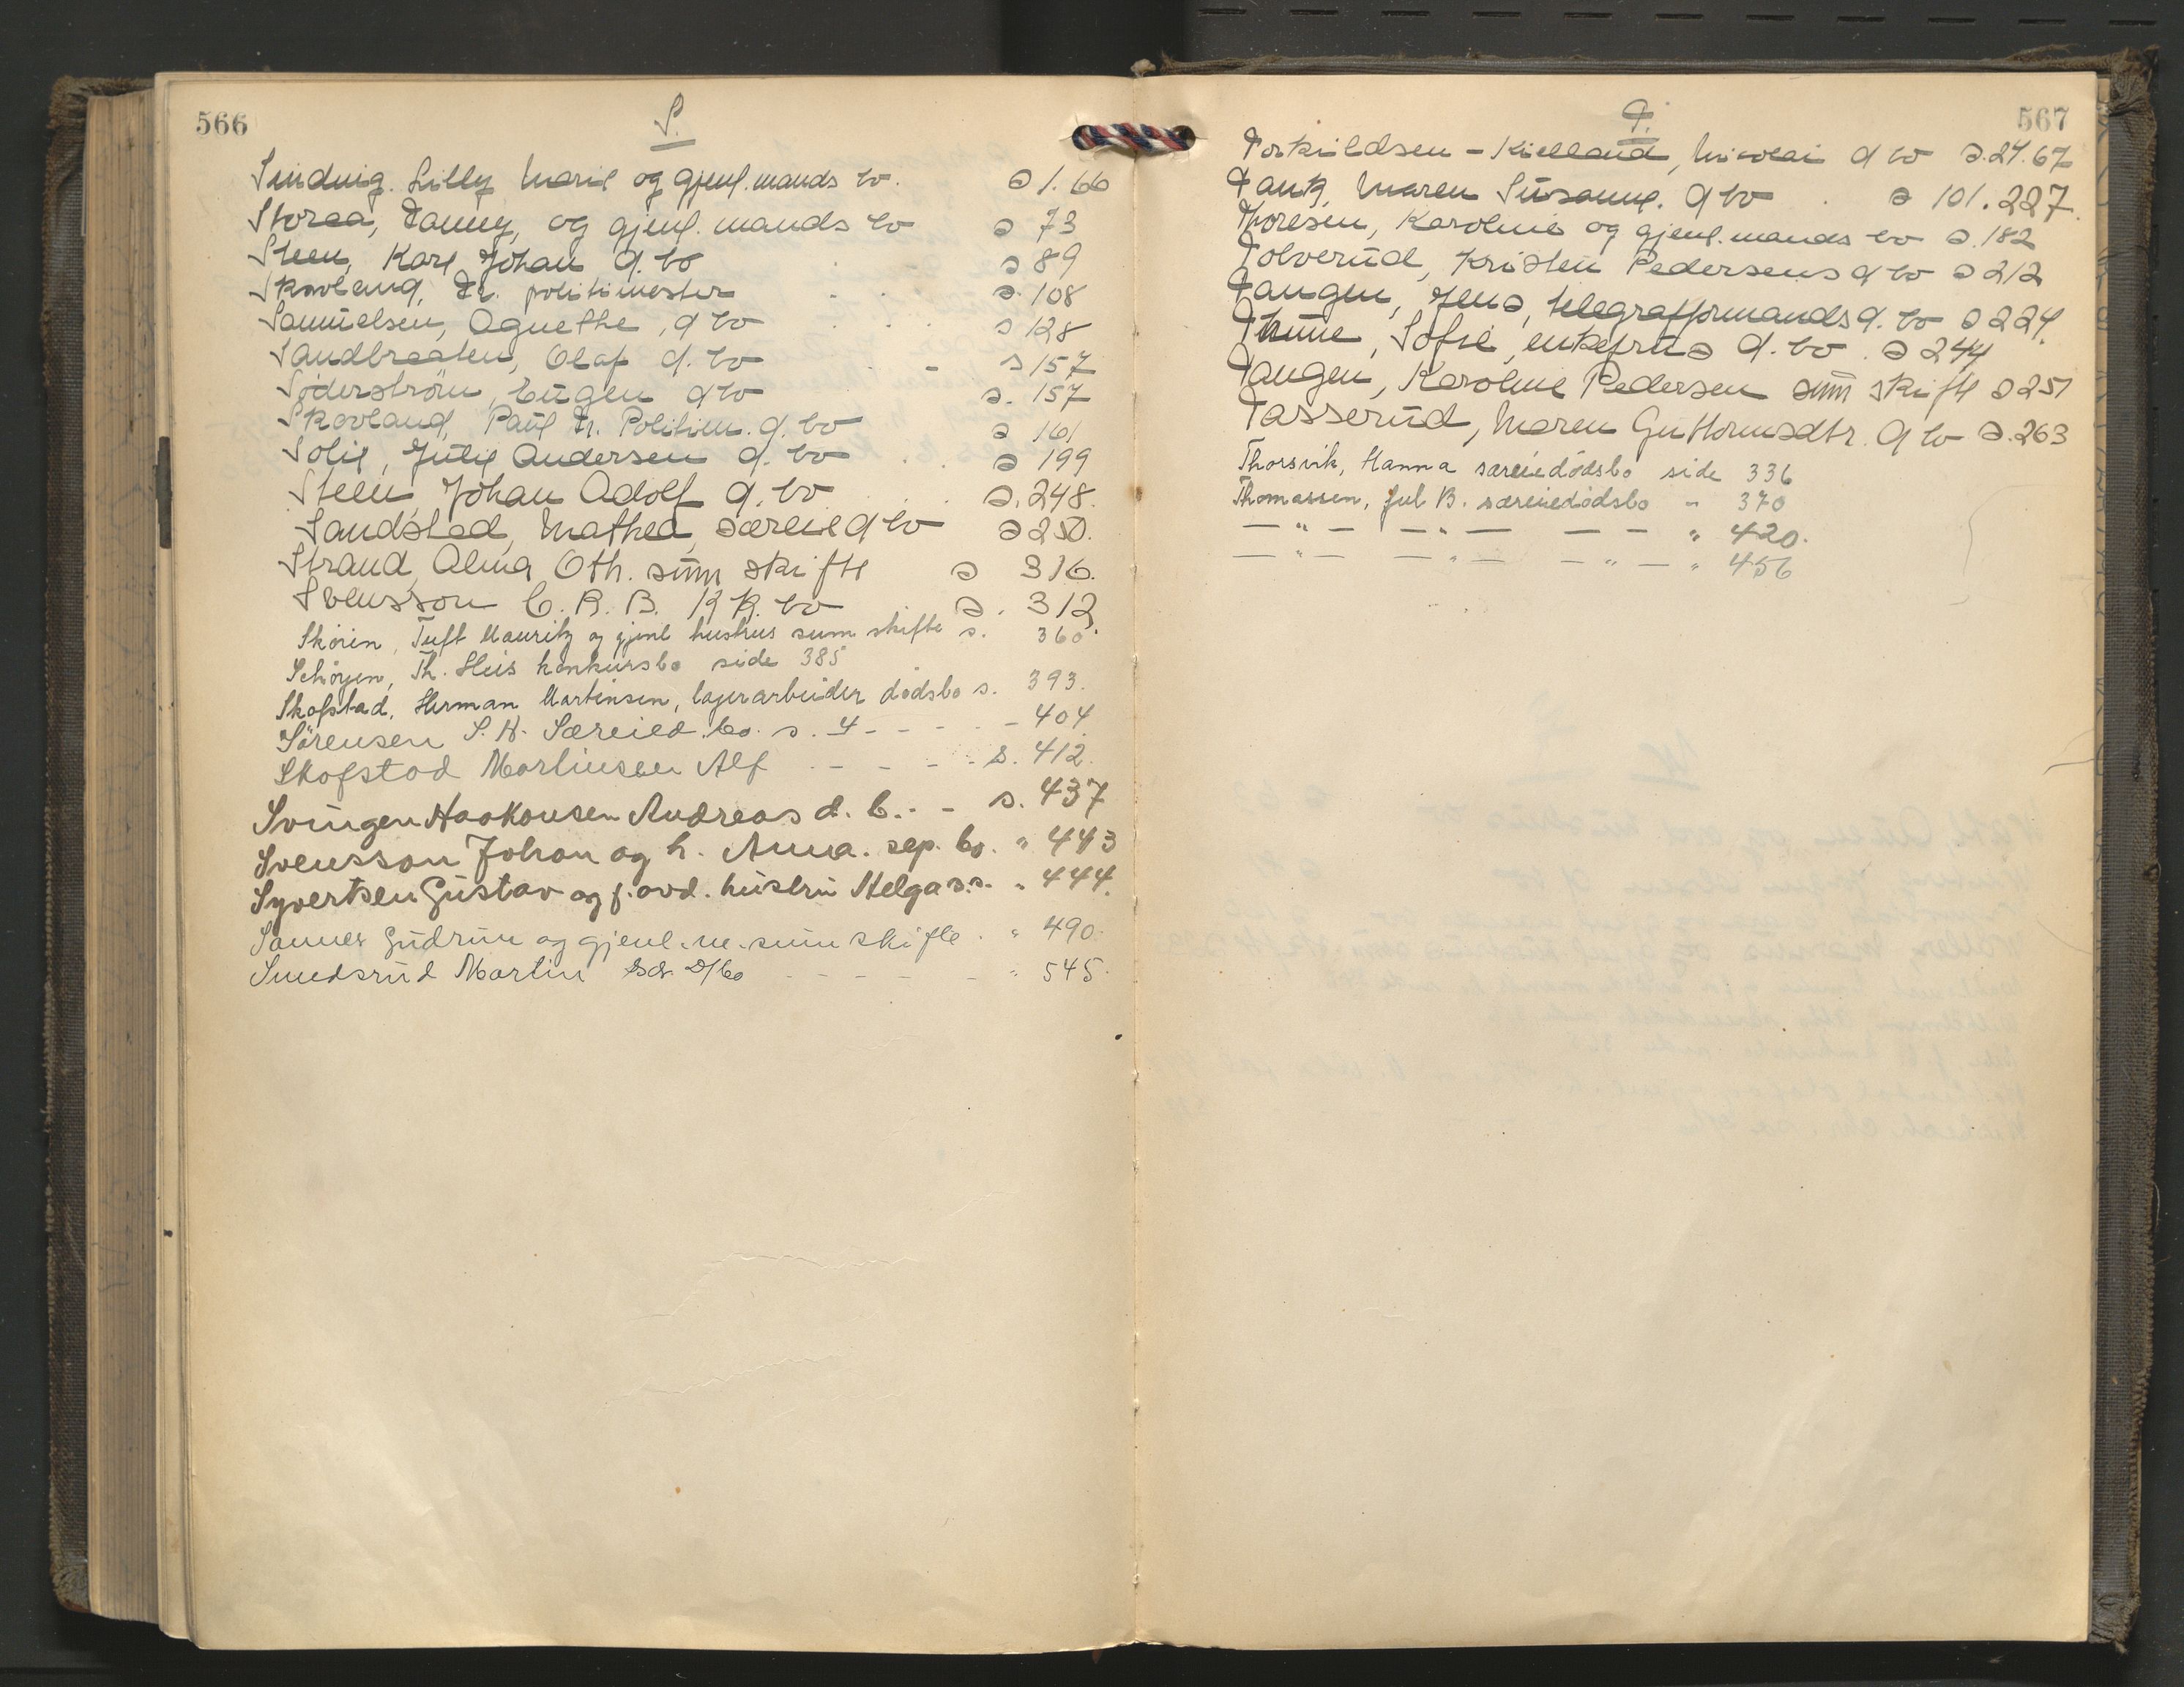 566
S.
Sinding. Lilly Marie og gjenl. mands bo. s 1. 66
Storaa, Fanny, og gjenl. mands bo s 73
Steen, Karl Johan d. bo s 89
Skovland, Tr. politimester s. 108
Samuelsen, Agnethe, d bo s 128
Sandbraaten, Olaf d. bo - s 157
Söderström, Eugen d bo s. 157
Skovland, Paul Tr. Politim. d. bo s 161
Solie, Julie Andersen d. bo s 199
Steen, Johan Adolf d. bo s. 248.
Sandstad, Mathea, særeie d bo s 250.
Strand Alma Oth. sum skifte s 316.
Svensson C. R. B. KK. bo s. 312.
Skören, Tuft Mauritz og gjenl hustrus sum skifte s. 360.
Schöyen, Th. Heis konkursbo side 385
Skofstad, Herman Martinsen, lagerarbeider dödsbo s. 393.
Sörensen S. H. Særeied. bo. s. 4 - - - - 404
Skofstad Martinsen Alf - - - - s. 412.
Svingen Haakonsen Andreas d. b. - - s. 437
Svensson Johan og h. Anna. sep. bo. " 443
Syvertsen Gustav og f. avd. hustru Helga s.s. " 444.
Sannes Gudrun og gjenl. m. sum skifte. " 490.
Smedsrud Martin Sdr. D/bo - - - - - " 545.
567
T.
Torkildsen - Kielland, Nicolai d bo s. 24. 67
Tank, Maren Susanne. d bo s 101. 227.
Thoresen, Karoline og gjenl. mands bo s. 182
Tolverud, Kristen Pedersens d bo s 212
Tangen, Jens, telegrafformands d. bo s 224.
Thune, Sofie, enkefrus d. bo. s 244
Tangen, Karoline Pedersen sum skifte s 251
Tasserud, Maren Guttormsdtr. d bo s. 263
Thorsvik, Hanna særeiedödsbo side 336
Thomassen, Jul B. særeiedödsbo " 370
— " — — " — — — " 420.
— " — — " — — " — " 456